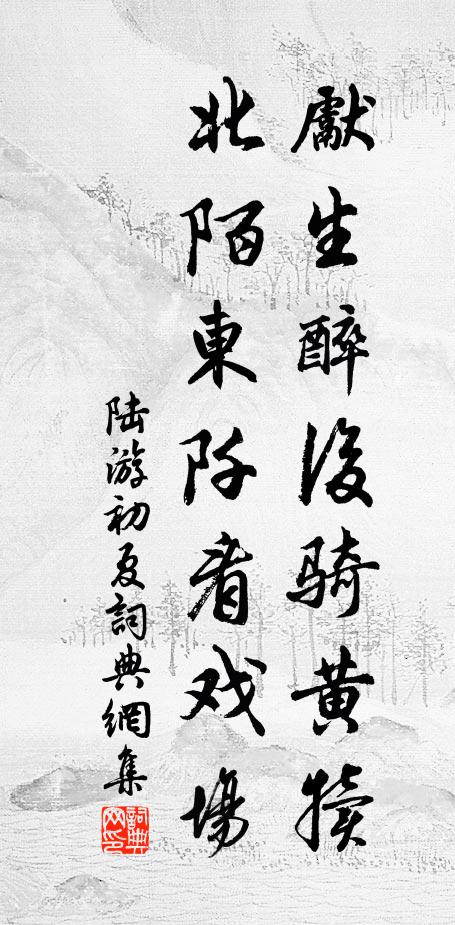 獻生醉後騎黃犢
北陌東阡看戏場
陆游初夏詞典網集
詞典网印